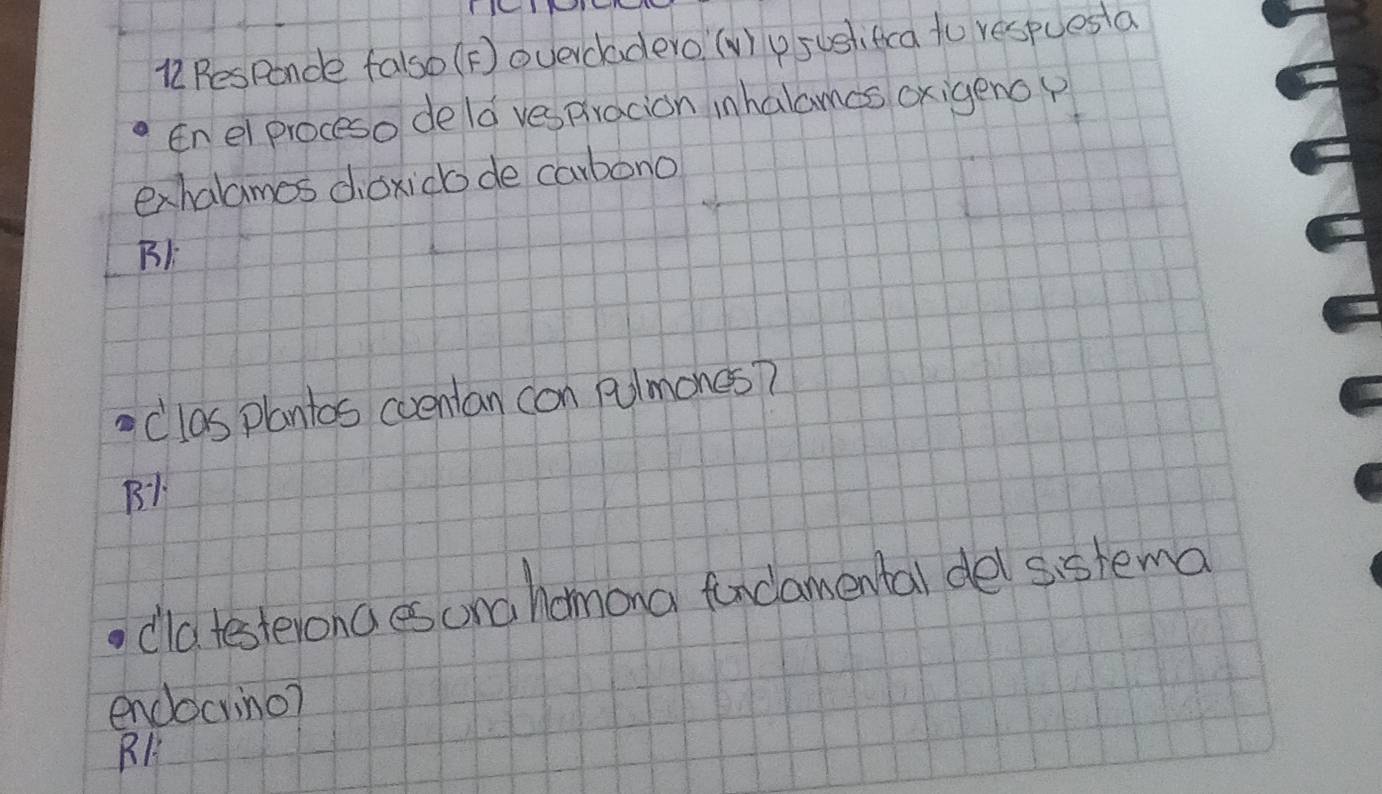 12 Responde falso (F) o verdadero (v) y justifica tu respuesta
• En el proceso de la respiracion inhalamos oxigeno y
exhalamos dioxido de carbono
R/:
• ¿las plantas cuentan con pulmones?
R/:
• ¿la testerona es una hormona fundamental del sistema
endocrino?
R/: